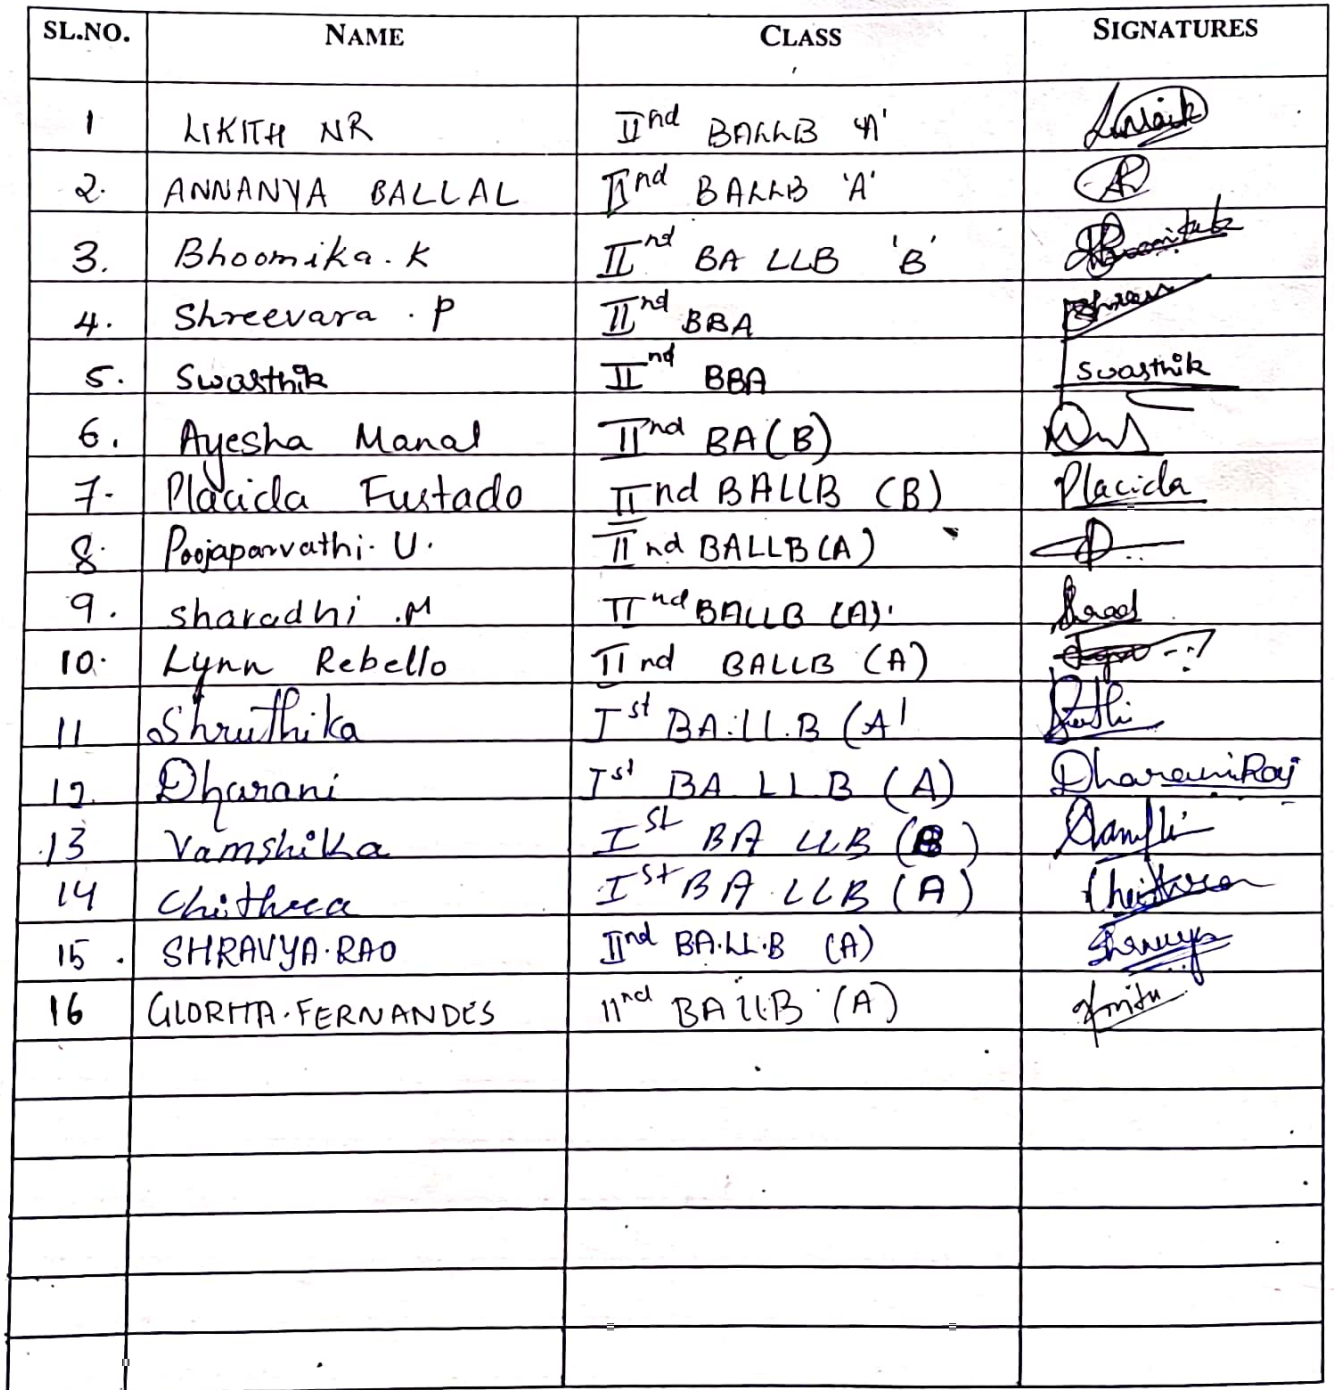 SL.NO. NAME CLASS SIGNATURES
1 LIKITH NR IInd BALLB 'A'
2. ANNANYA BALLAL IInd BALLB 'A'
3. Bhoomika.K IInd BA LLB 'B'
4. Shreevara.P IInd BBA
5. Swasthik IInd BBA Swasthik
6. Ayesha Manal IInd BA(B)
7. Placida Furtado IInd BALLB (B) Placida
8. Poojaparvathi.U. IInd BALLB(A)
9. sharadhi.M IInd BALLB (A).
10. Lynn Rebello IInd BALLB (A)
11 Shruthika Ist BA.LL.B (A)
12 Dharani Ist BA LLB (A)
13 Vamshika Ist BA LLB (B)
14 Chithra Ist BA.LLB (A)
15. SHRAVYA.RAO IInd BA.LL.B (A) Shravya
16 FERNANDES IInd BALLB (A)